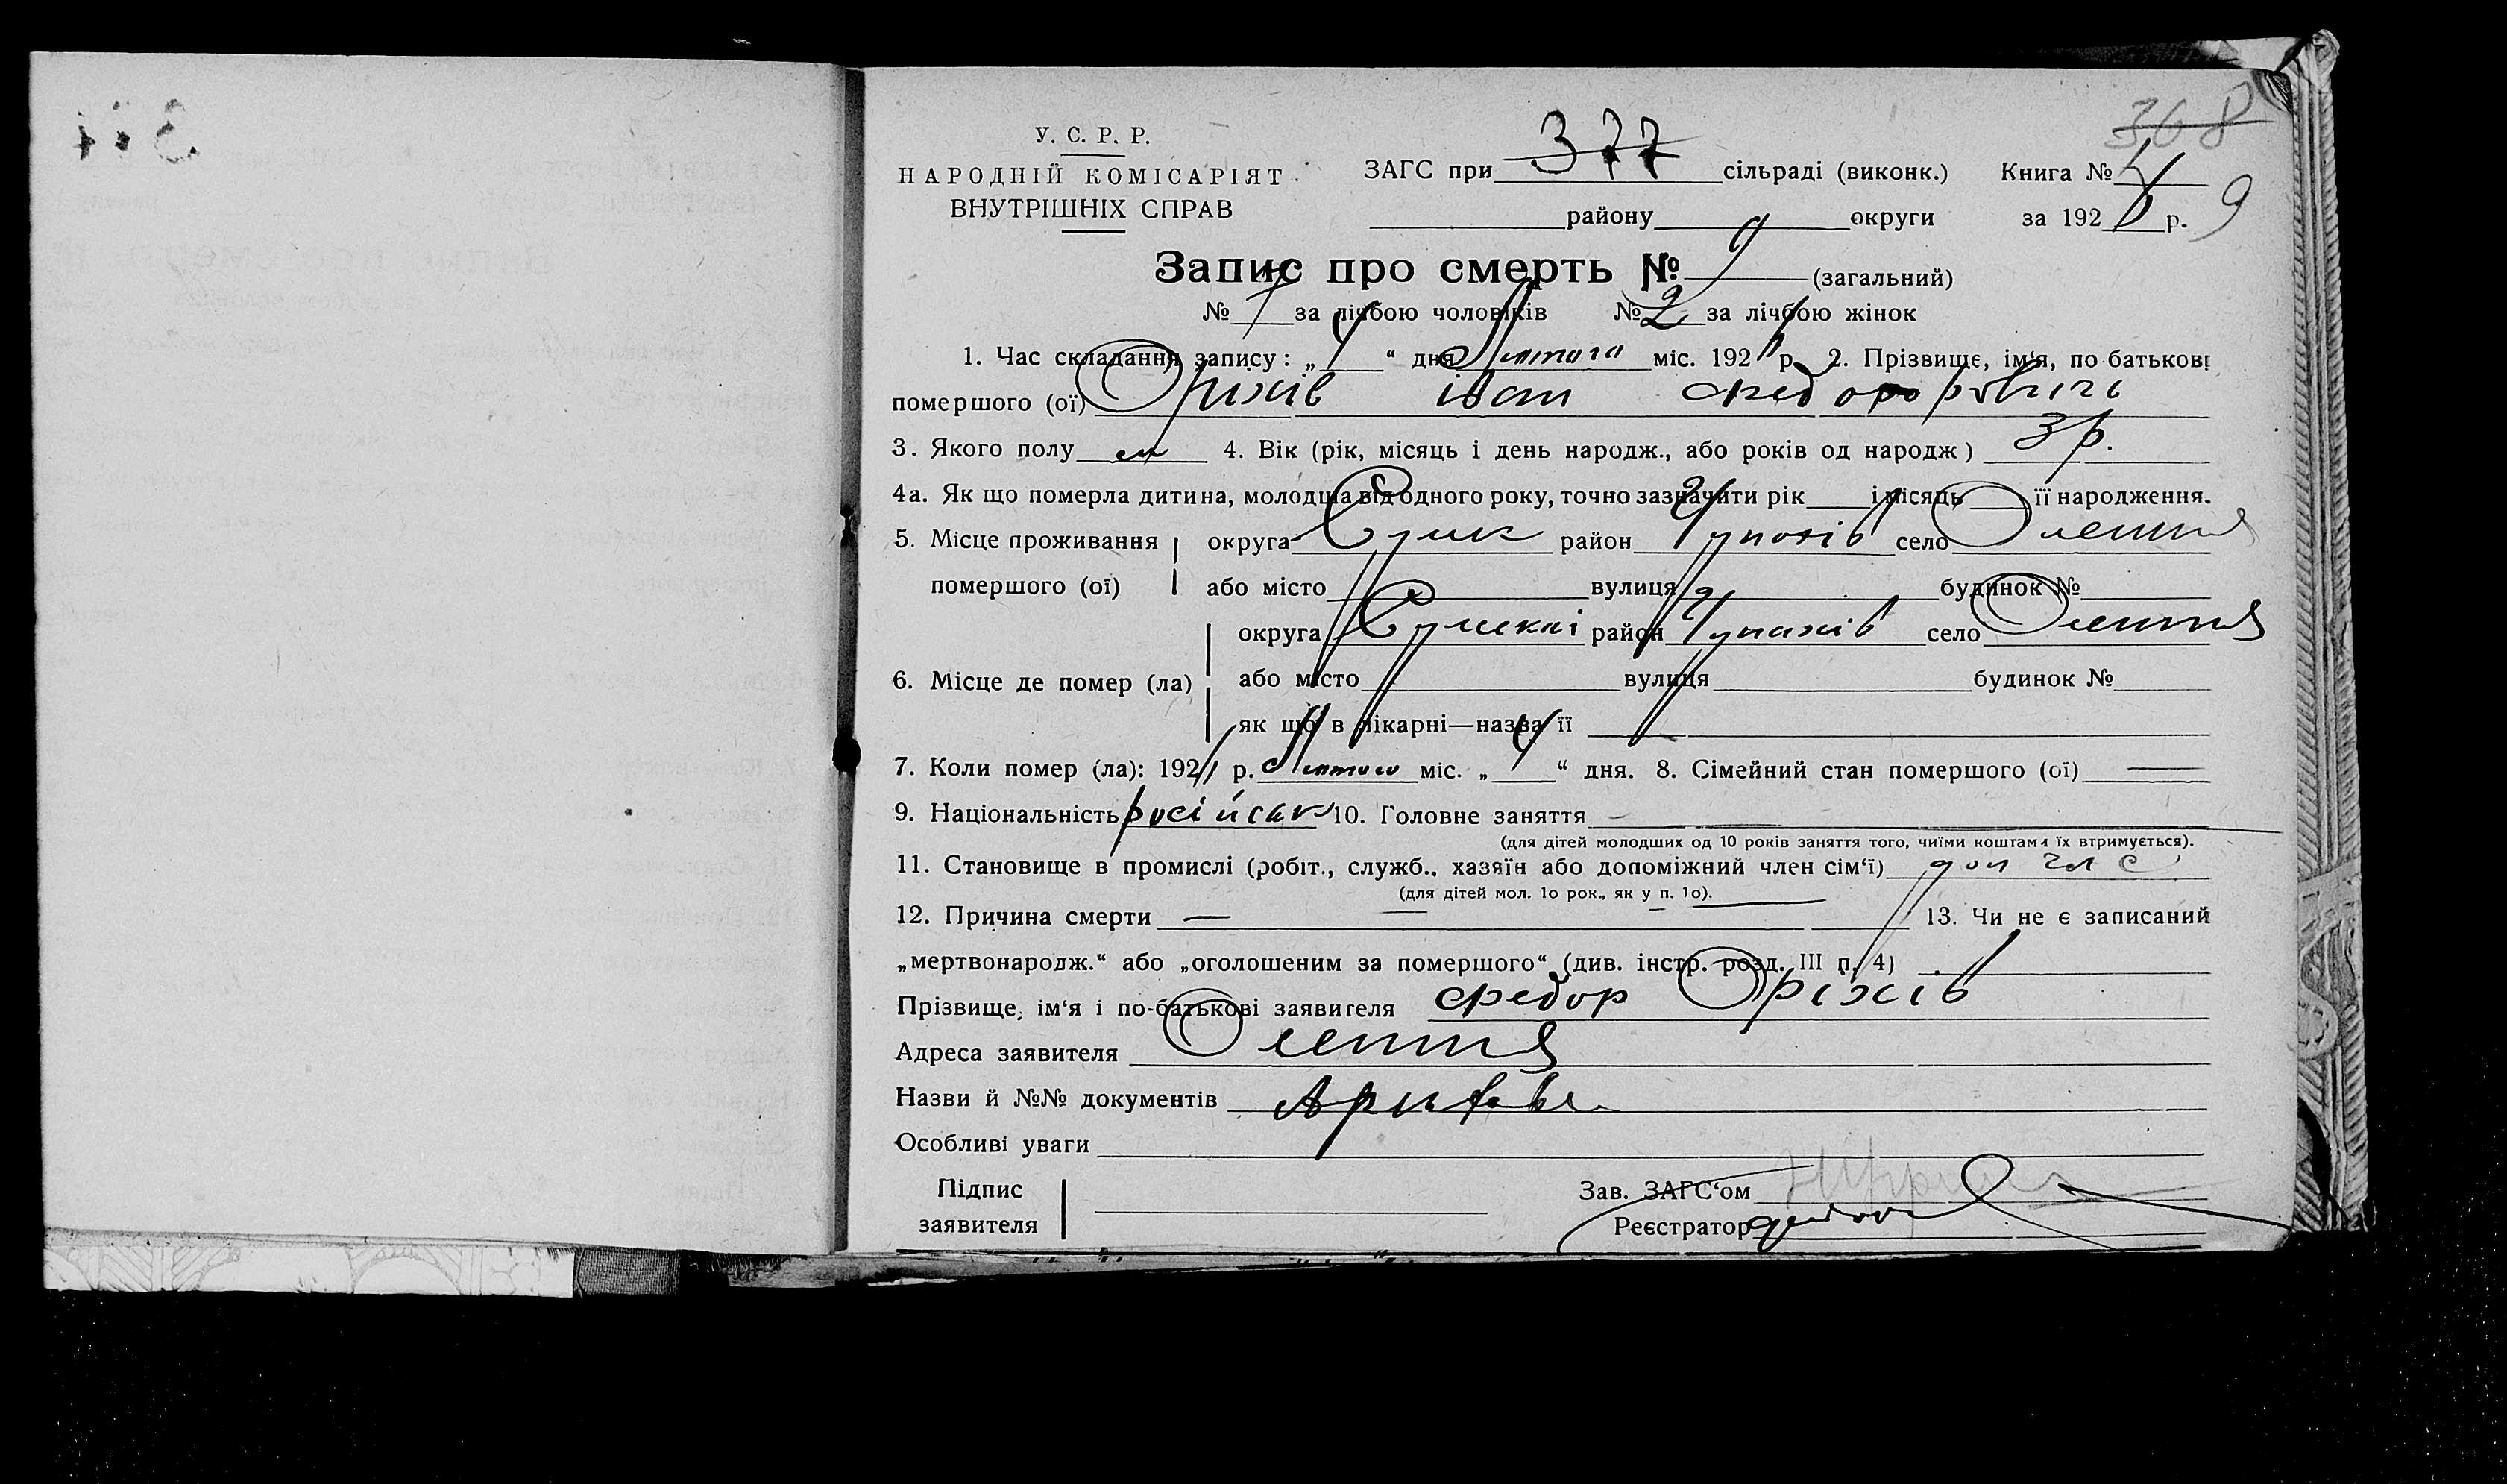 368
У. С. Р. Р.
НАРОДНІЙ КОМІСАРІЯТ
ВНУТРІШНІХ СПРАВ
ЗАГС при 377 сільраді (виконк.) Книга №
району округи за 192 р. 9
Запис про смерть № 9 (загальний)
№ 7 за лічбою чоловіків № 2 за лічбою жінок
1. Час складання запису: „4“ дня Лютого міс. 192 р. 2. Прізвище, ім‘я, по батькові
помершого (ої) Оріхів іван Федорович
3. Якого полу м 4. Вік (рік, місяць і день народж., або років од народж) 3 р.
4а. Як що померла дитина, молодша від одного року, точно зазначити рік і місяць її народження.
5. Місце проживання округа Сумск район Чупахів село Олешня
помершого (ої) або місто вулиця будинок №
округа Сумскаі район Чупахів село Олешня
6. Місце де помер (ла) або місто вулиця будинок №
як що в лікарні—назва її
7. Коли помер (ла): 192 р. Лютого міс. „4“ дня. 8. Сімейний стан помершого (ої) —
9. Національність 10. Головне заняття —
(для дітей молодших од 10 років заняття того, чиїми коштами їх втримується).
11. Становище в промислі (робіт., служб., хазяїн або допоміжний член сім‘ї) доп чл с
(для дітей мол. 1о рок., як у п. 1о).
12. Причина смерти — 13. Чи не є записаний
„мертвонародж.“ або „оголошеним за помершого“ (див. інстр. розд. III п. 4)
Прізвище, ім‘я і по-батькові заявителя Федор Оріхів
Адреса заявителя Олешня
Назви й №№ документів
Особливі уваги
Підпис Зав. ЗАГС‘ом
заявителя Реєстратор